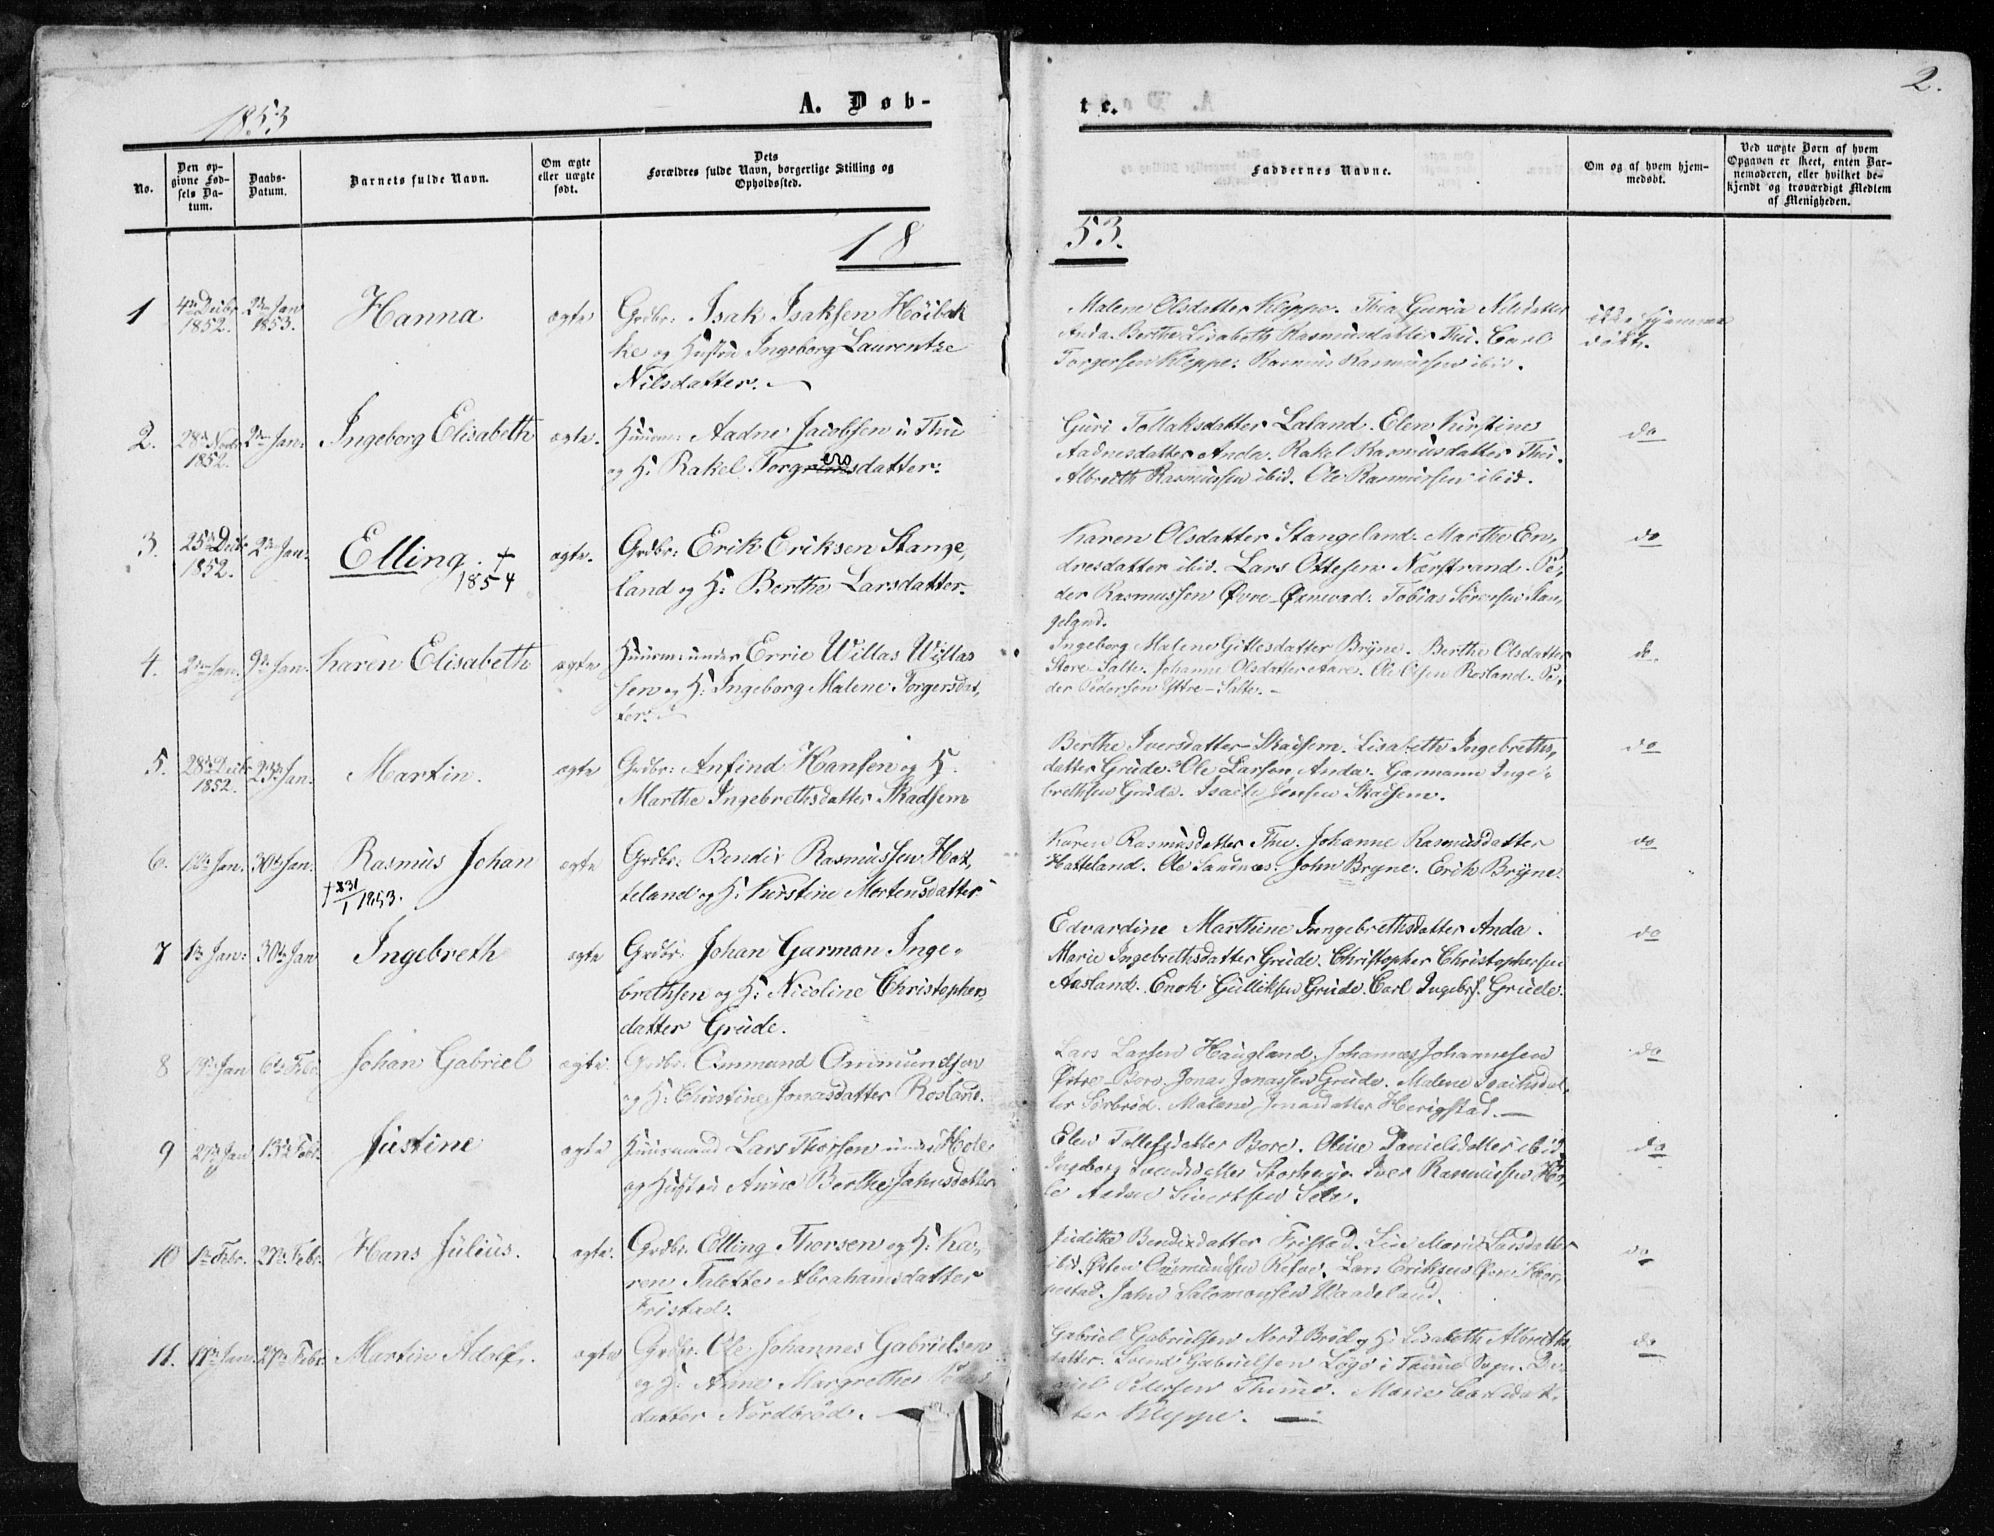 1853
A. Døb-
te.
2.
No.
Den op-
givne Fød-
sels Da-
tum.
Daabs-
Datum.
Barnets fulde Navn.
Om ægte
eller uægte
født.
Dets
Forældres fulde Navn, borgerlige Stilling og
Opholdssted.
Faddernes Navne.
Om og af hvem hjem-
medøbt.
Ved uægte Børn af hvem
Opgaven er skeet, enten Bar-
nemoderen, eller hvilket be-
kjendt og troværdigt Medlem
af Menigheden.
18
53.
1
4de Decbr
1852.
2den Jan
1853.
Hanna
ægte
Grdbr: Isak Isaksen Höibak
ke og Hustru Ingeborg Laurentze
Nilsdatter.
Malene Olsdatter Kleppe. Thea Guria Nilsdatter
Anda. Berthe Lisabeth Rasmusdatter Thu. Carl
Torgersen Kleppe. Rasmus Rasmussen ibid.
ikke hjemme
döbt.
2.
28de Novbr
1852.
2den Jan:
Ingeborg Elisabeth
ægte.
Huusm: Aadne Jacobsen u Thu
og H: Rakel Torgersdatter.
Guri Tollaksdatter Laland. Elen Kirstine
Aadnesdatter Anda. Rakel Rasmusdatter Thu.
Albreth Rasmussen ibid. Ole Rasmussen ibid.
do
3.
25de Decbr
1852.
2den Jan:
Elling. †
1854
ægte.
Grdbr: Erik Eriksen Stange,
land og H: Berthe Larsdatter.
Karen Olsdatter Stangeland. Marthe En,
dresdatter ibid. Lars Ottesen Nærstrand. Pe,
der Rasmussen Øvre-Øxnevad. Tobias Sörensen Stan,
geland.
do
4.
2den Jan.
9de Jan:
Karen Elisabeth
ægte
Huusm: under Errie Willas Willas
sen og H: Ingeborg Malene Torgersdat,
ter.
Ingeborg Malene Gittesdatter Bryne. Berthe Olsdatter
Store-Salte. Johanne Olsdatter Aare. Ole Olsen Rosland. Pe,
der Pedersen Yttre-Salte.
do.
5.
28de Decbr
1852.
23de Jan:
Martin.
ægte
Grdbr: Anfind Hansen og H.
Marthe Ingebrethsdatter Skadsem
Berthe Iversdatter Skadsem. Lisabeth Ingebreths,
datter Grude. Ole Larsen Anda. Garmann Inge,
brethsen Grude. Isach Jensen Skadsem.
do
6.
Jan:
30te Jan:
Rasmus Johan
† 31/1 1853.
ægte
Grdbr: Bendix Rasmussen Hat
teland og H: Kirstine Mortensdatter
Karen Rasmusdatter Thu. Johanne Rasmusdatter
Hatteland. Ole Sandnes. John Bryne. Erik Bryne.
do
7
Jan:
30te Jan
Ingebreth
ægte
Grdbr: Johan Garman Inge,
brethsen og H: Nicoline Christophers,
datter Grude.
Edvardine Marthine Inngebrethsdatter Anda.
Marie Ingebrethsdatter Grude. Christopher Christophersen
Aasland. Enok Gulliksen Grude. Carl Ingebs. Grude.
do
8
19de Jan
6te Febr.
Johan Gabriel
ægte
Grdbr: Ommund Ommundsen
og H: Christine Jonasdatter Rosland.
Lars Larsen Haugland. Johannes Johannesen
Østre-Bore. Jonas Jonassen Grude. Malene Isachsdat,
ter Sörbröd. Malene Jonasdatter Herigstad.
do
9
27de Jan
13de Febr.
Justine
ægte
Huusmand Lars Thorsen under Hole
og Hustru Anne Berthe Jahnsdatter
Elen Tollefsdatter Bore. Oline Danielsdatter ibid.
Ingeborg Svendsdatter Iver Rasmussen Ho,
le Aadne Sivertsen Sele.
do
10
1ste Febr.
27de Febr.
Hans Julius.
ægte.
Grdbr. Elling Thorsen og H: Ka,
ren Talette Abrahamsdatter
Fristad.
Judithe Bendixdatter Fristad. Line Marie Larsdatter
ibid. Østen Ommundsen Refve. Lars Eriksen Øvre Hær,
pestad. Jahn Salomonsen Waadeland.
do
11.
Jan.
27de Febr.
Martin Adolf.
ægte
Grdbr. Ole Johannes Gabrielsen
og H: Anne Margrethe Peders
datter Nordbröd.
Gabriel Gabrielsen Nord Bröd og H: Lisabeth Albreths,
datter. Svend Gabrielsen Löge i Time Sogn. Da
niel Pedersen Thime. Marie Carlsdat,
ter Kleppe.
do